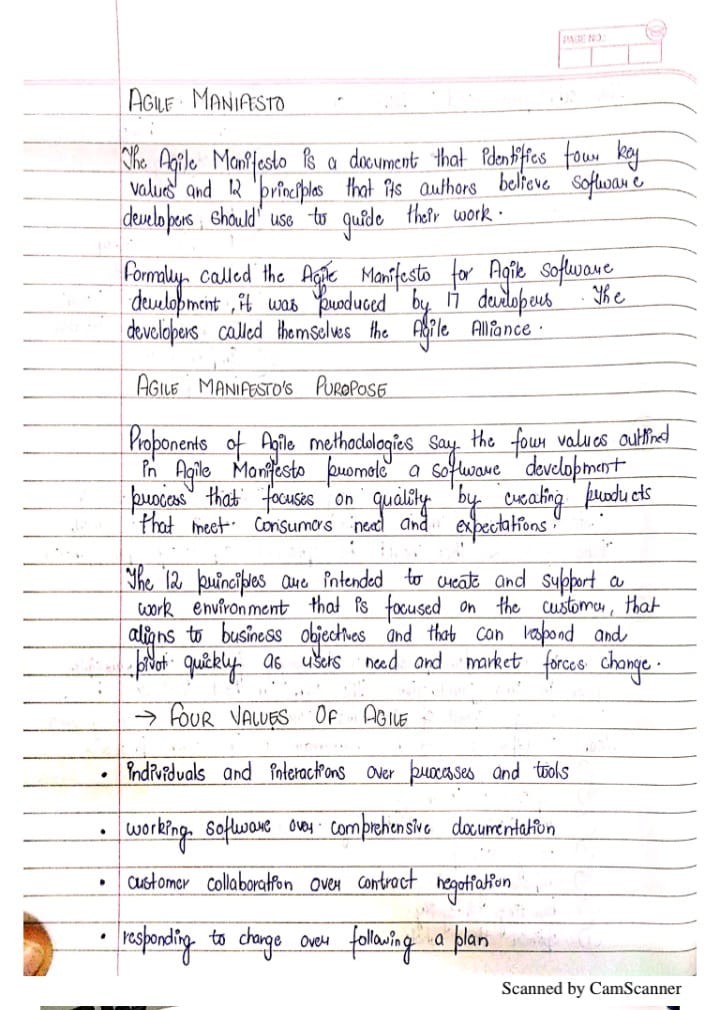 PAGE NO.:
AGILE MANIFESTO
The Agile Manifesto is a document that identifies four key
values and 12 principles that its authors believe software
developers should use to guide their work.
Formally called the Agile Manifesto for Agile software
development, it was produced by 17 developers. The
developers called themselves the Agile Alliance.
AGILE MANIFESTO'S PUROPOSE
Proponents of Agile methodologies say the four values outlind
in Agile Manifesto promote a software development
process that focuses on quality by creating products
that meet consumers need and expectations.
The 12 principles are intended to create and support a
work environment that is focused on the customer, that
aligns to business objectives and that can respond and
pivot quickly as users need and market forces change.
→ FOUR VALUES OF AGILE
• individuals and interactions over processes and tools
• working software over comprehensive documentation
• customer collaboration over contract negotiation
• responding to change over following a plan
Scanned by CamScanner